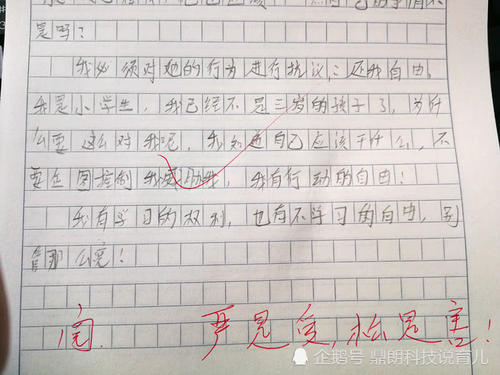 是吗？
我必须对她的行为进行抗议：还我自由。
我是小学生，我已经不是三岁的孩子了，为什
么要这么对我呢，我知道自己应该干什么，不
要企图控制我，我有行动的自由！
我有学习的权利，也有不学习的自由，别
管那么宽！
阅。 严是爱，松是害！
企鹅号 鼎朗科技说育儿